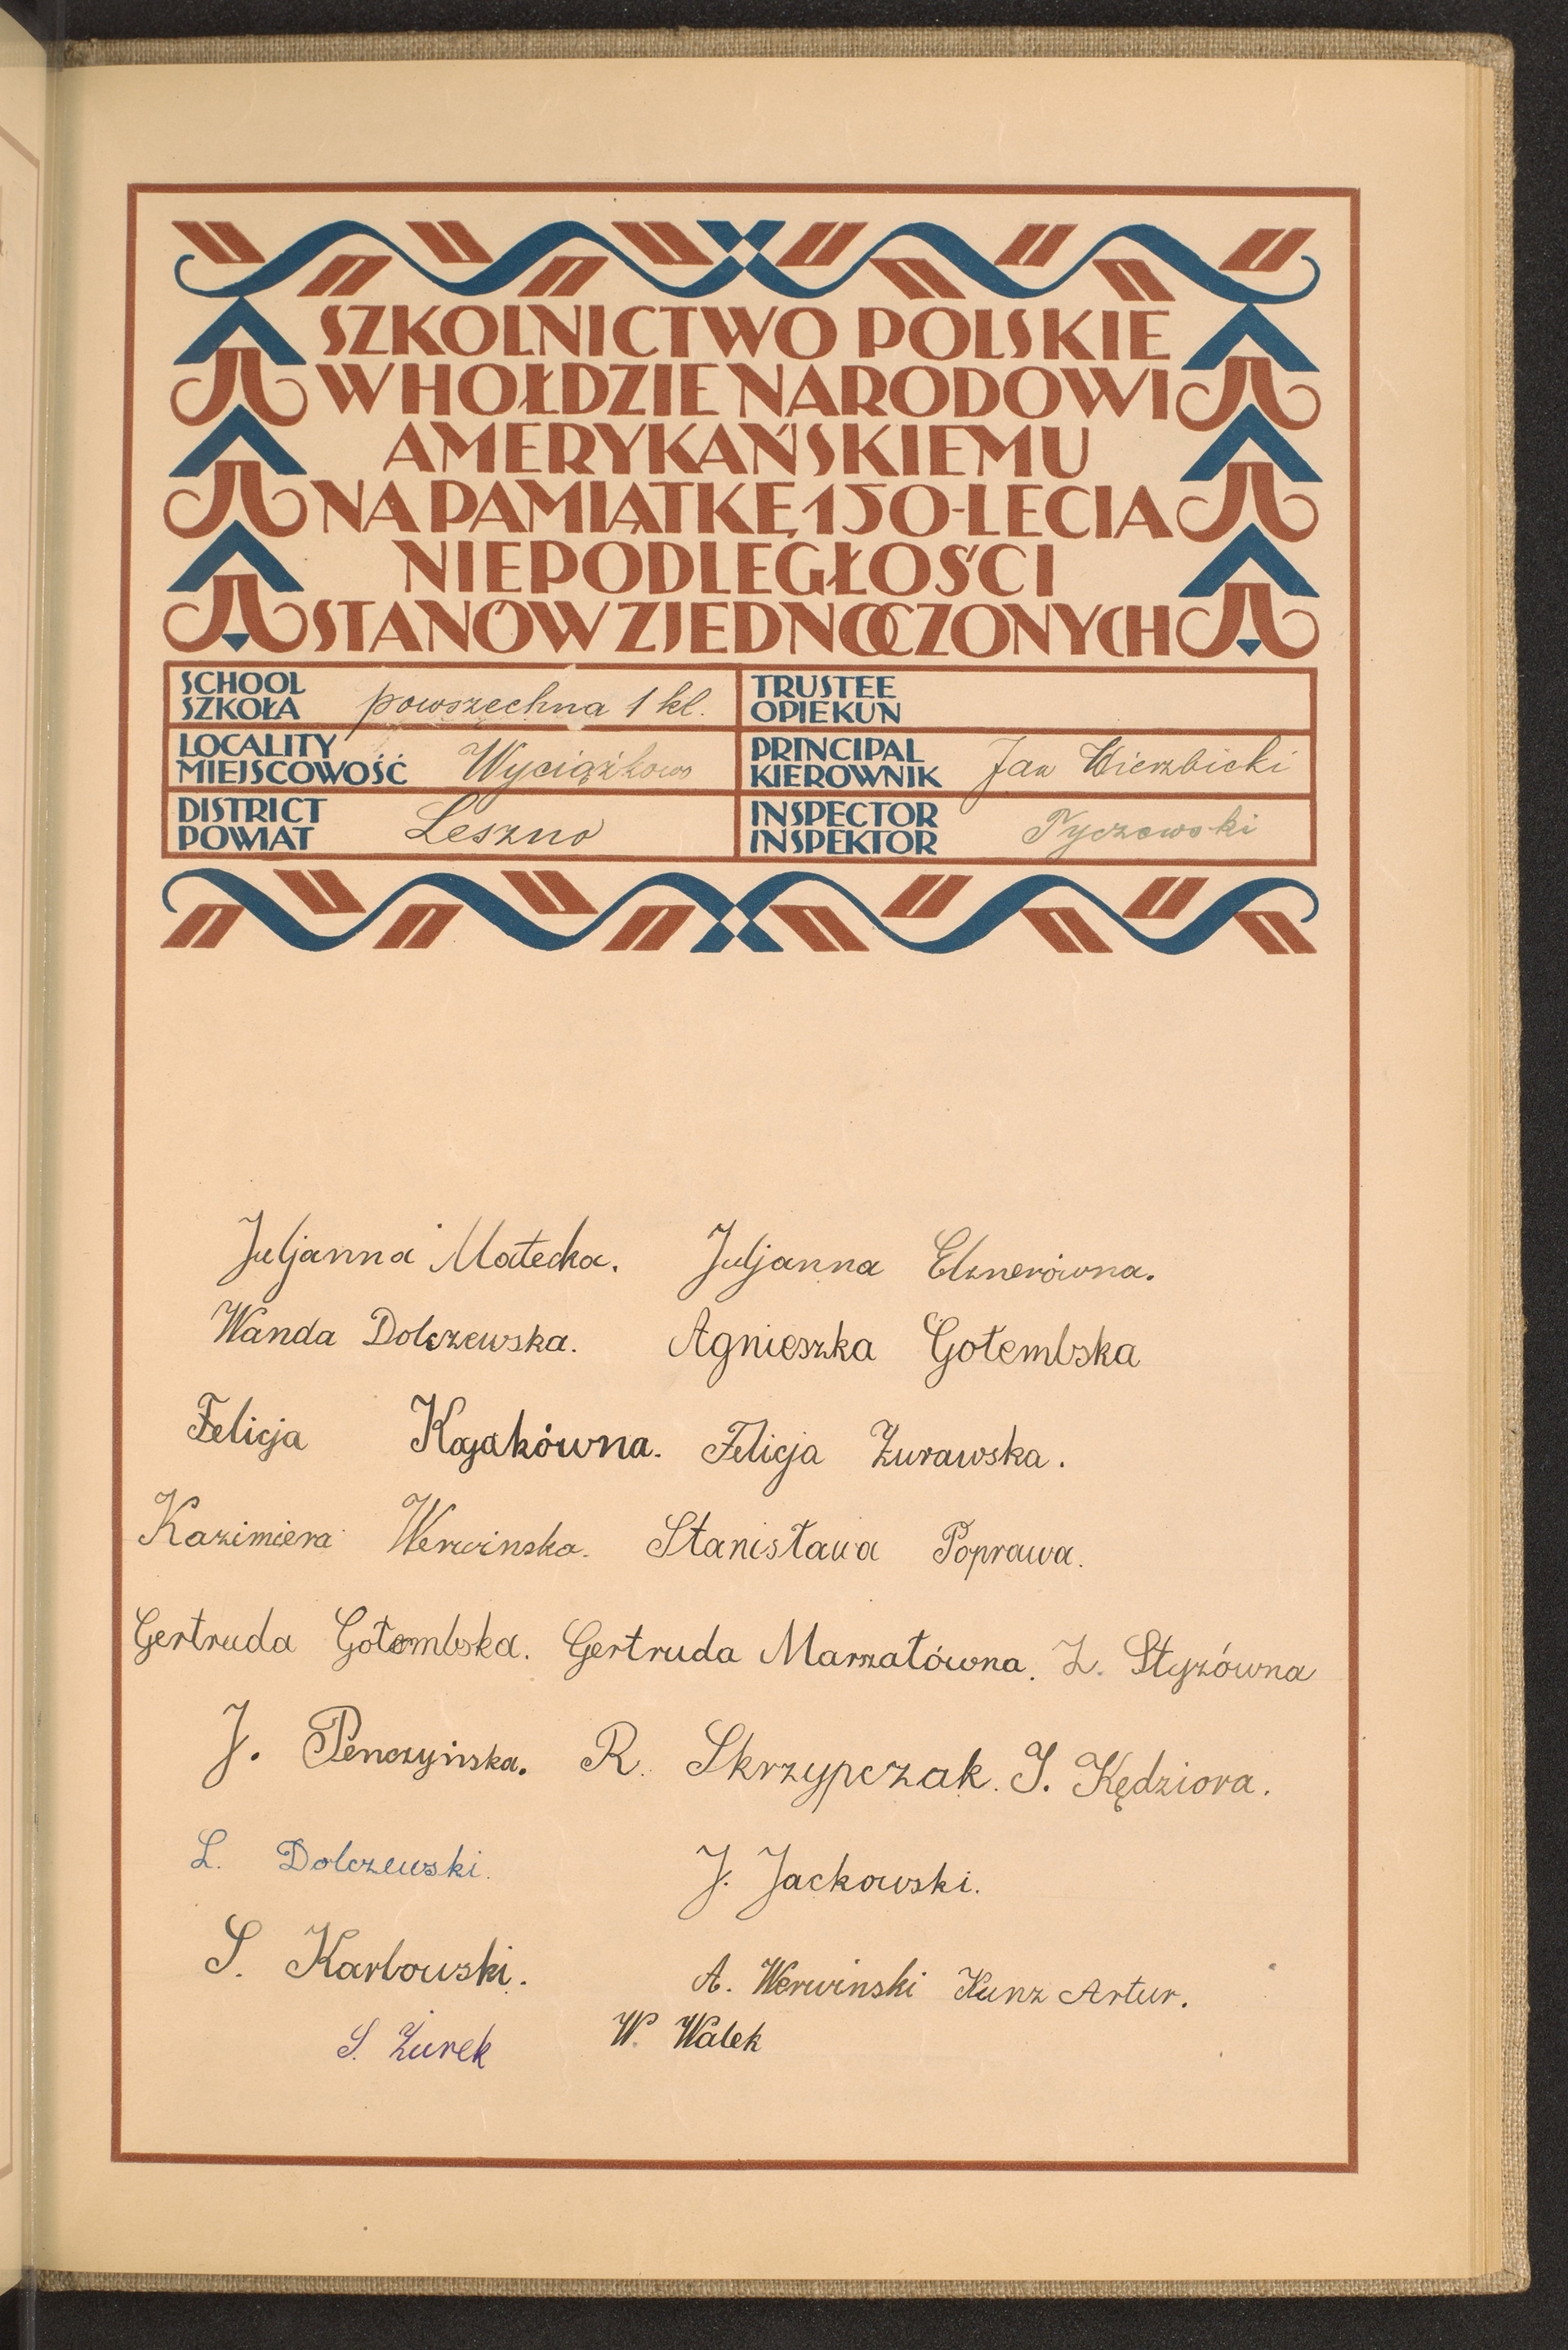 SZKOLNICTWO POLSKIE
W HOŁDZIE NARODOWI
AMERYKAŃSKIEMU
NA PAMIĄTKĘ 150-LECIA
NIEPODLEGŁOŚCI
STANÓW ZJEDNOCZONYCH
SCHOOL
SZKOŁA powszechna 1 kl.
TRUSTEE
OPIEKUN
LOCALITY
MIEJSCOWOŚĆ Wyciążkowo
PRINCIPAL
KIEROWNIK Jan Wierzbicki
DISTRICT
POWIAT Leszno
INSPECTOR
INSPEKTOR Tyczewski
Juljanna Małecka. Juljanna Elznerówna.
Wanda Dolczewska. Agnieszka Gołembska
Felicja Kajakówna. Felicja Żurawska.
Kazimiera Werwinska. Stanisława Poprawa.
Gertruda Gołembska. Gertruda Marszałówna. Z. Styzówna
J. Penczyńska. R. Skrzypczak. I. Kędziora.
L. Dolczewski. J. Jackowski.
S. Karbowski. A. Werwinski Kunz Artur.
S. Żurek W. Walek